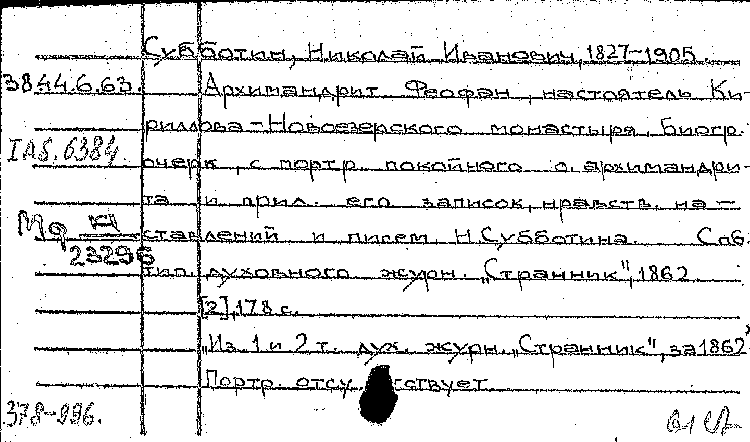 Субботин, Николай Иванович, 1827-1905.
3844.6.63. Архимандрит Феофан, настоятель Ки-
риллова-Новоезерского монастыря. Биогр.
IAS. 6384. очерк, с портр. покойного о. архимандри-
та и прил. его записок, нравств. на-
ставлений и писем, Н. Субботина. Спб.
Мф Н
23296
тип. духовного журн. „Странник", 1862
[2], 178 с.
„Из 1 и 2 т. дух. журн. „Странник", за 1862,
Портр. отсутствует.
378-996.